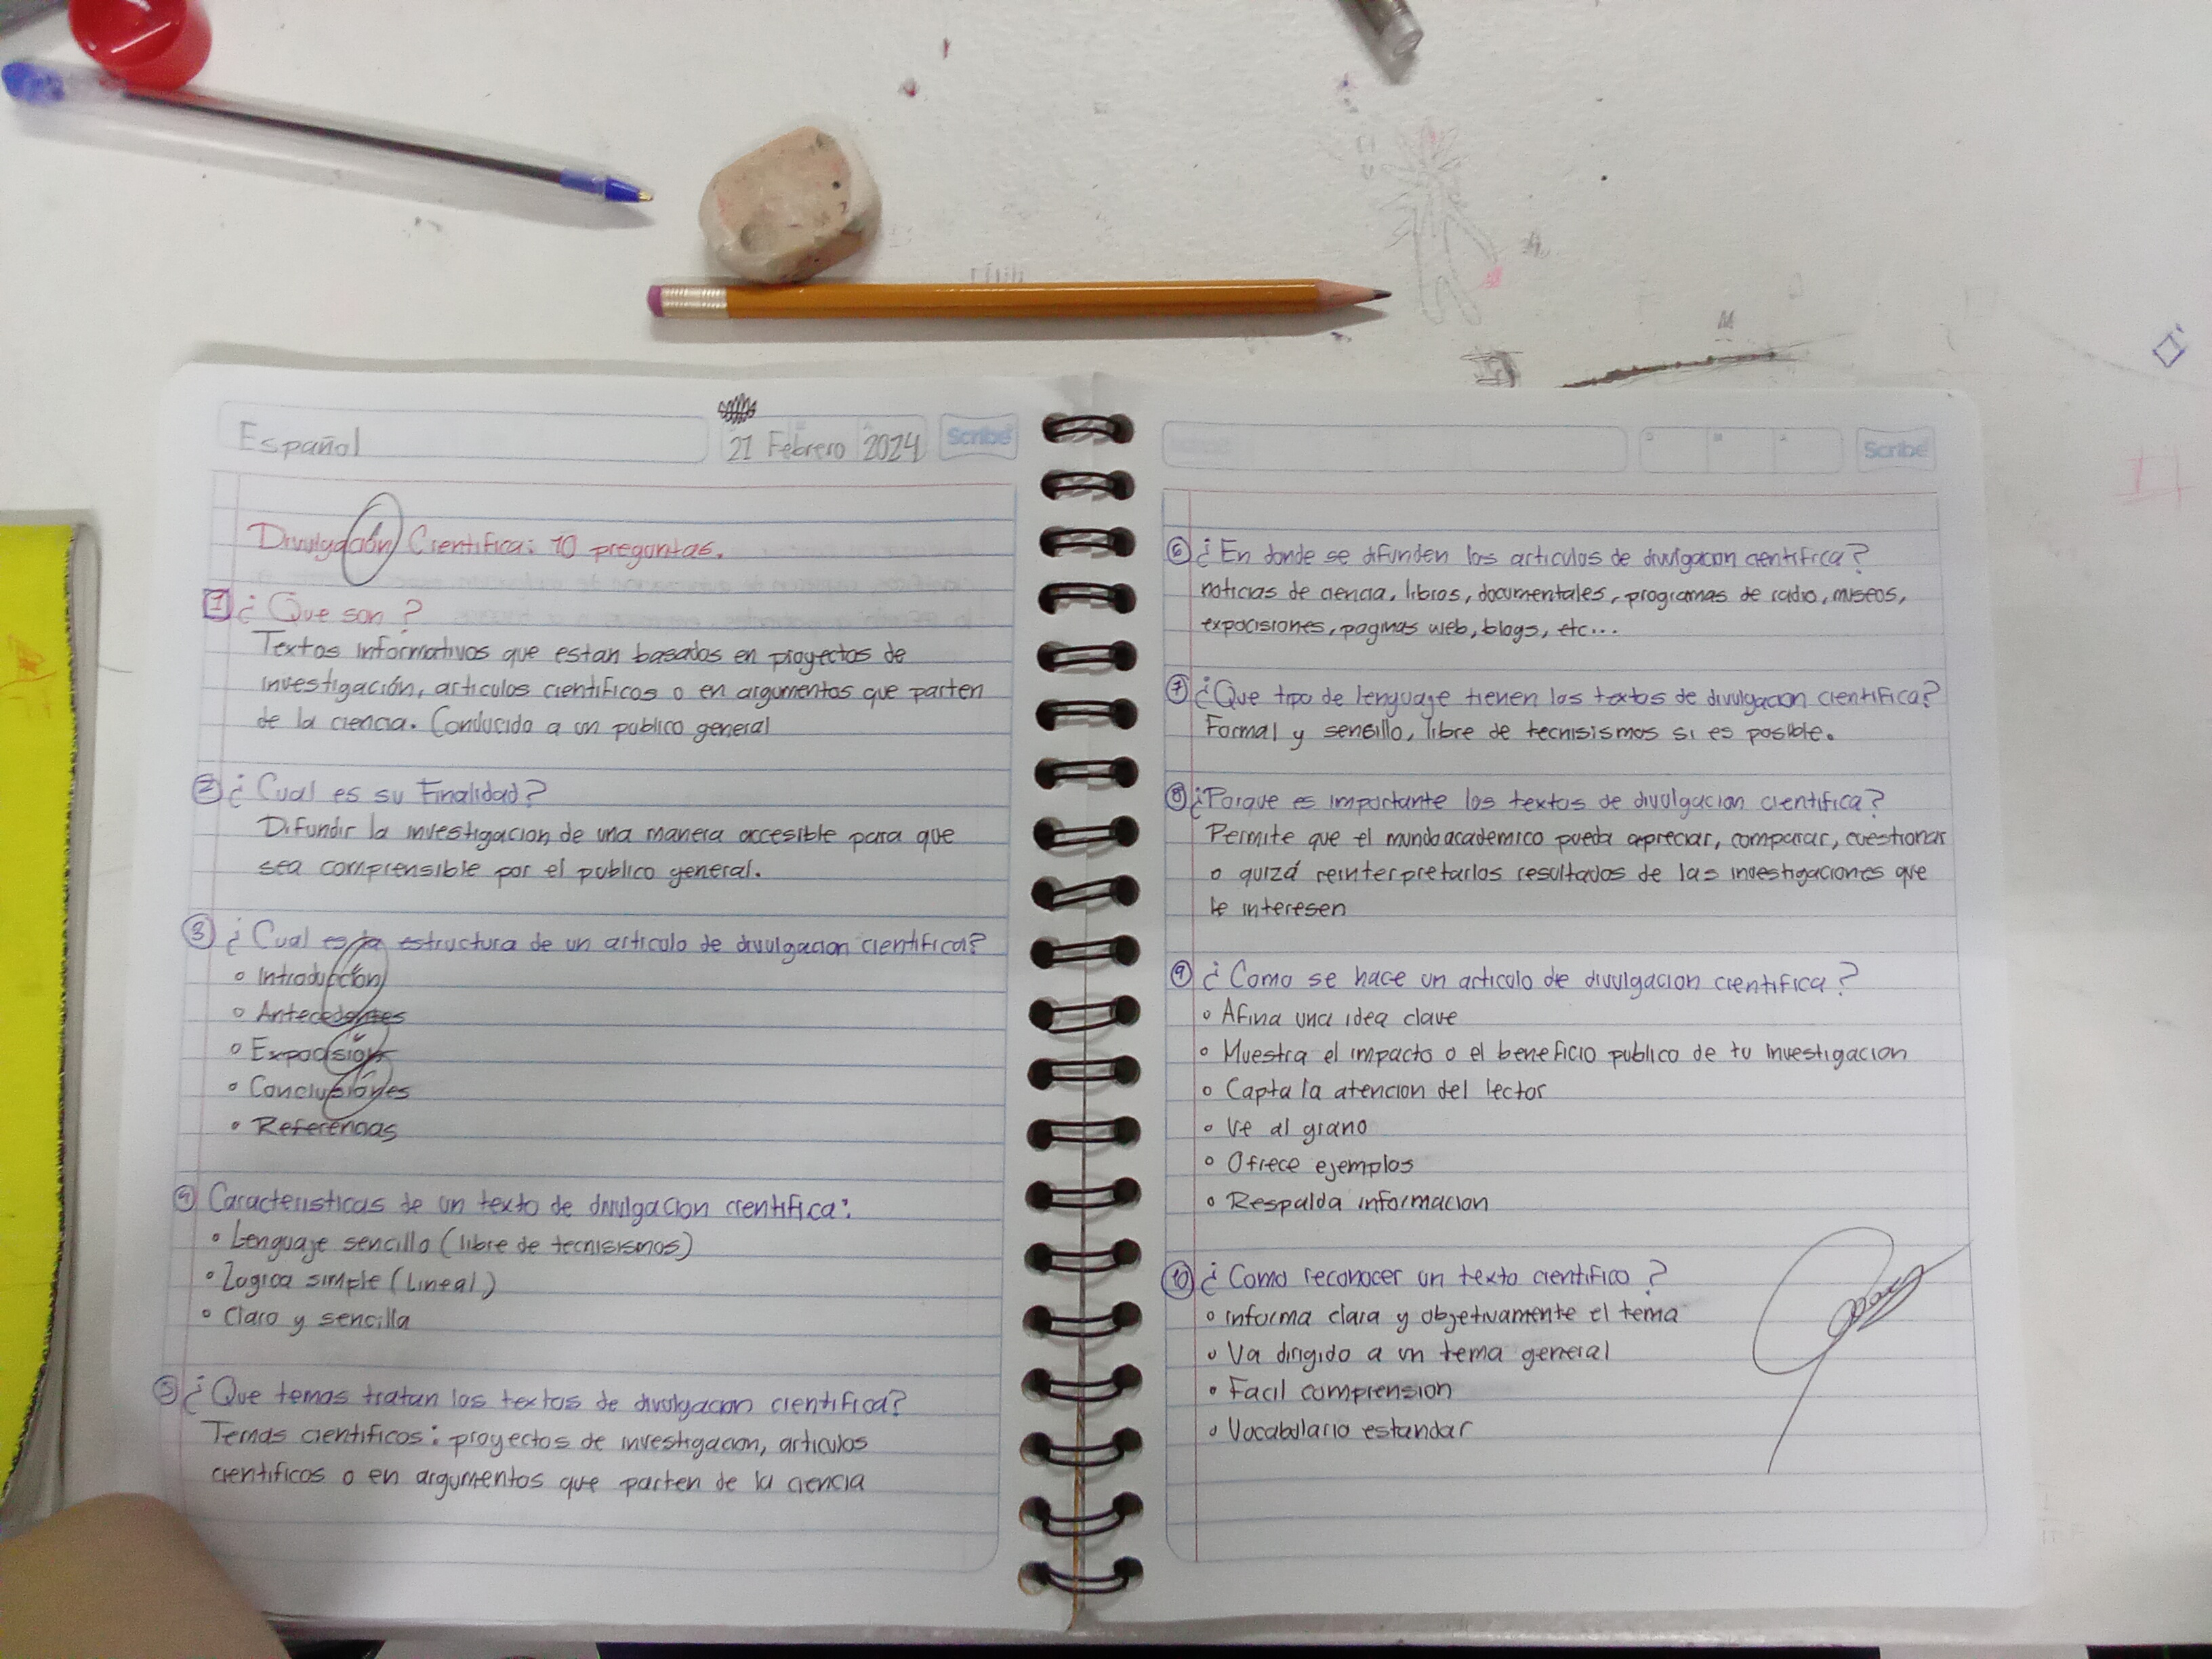 Español
21 Febrero 2024
Scribe
Divulgación Cientifica: 10 preguntas.
1 ¿Que son?
Textos informativos que estan basados en proyectos de
investigación, articulos cientificos o en argumentos que parten
de la ciencia. Conducido a un publico general
2 ¿Cual es su Finalidad?
Difundir la investigacion, de una manera accesible para que
sea comprensible por el publico general.
3 ¿Cual es la estructura de un articulo de divulgacion cientifica?
• Introducción
• Antecedentes
• Exposisión
• Conclusiónes
• Referencias
4 Caracteristicas de un texto de divulgacion cientifica:
• Lenguaje sencillo (libre de tecnisismos)
• Logica simple (Lineal)
• Claro y sencilla
5 ¿Que temas tratan los textos de divulgacion cientifica?
Temas cientificos: proyectos de investigacion, articulos
cientificos o en argumentos que parten de la ciencia
Scribe
6 ¿En donde se difunden los articulos de divulgacion cientifica?
noticias de ciencia, libros, documentales, programas de radio, museos,
expocisiones, paginas web, blogs, etc...
7 ¿Que tipo de lenguaje tienen los textos de divulgacion cientifica?
Formal y sensillo, libre de tecnisismos si es posible.
8 ¿Porque es importante los textos de divulgacion cientifica?
Permite que el mundo academico pueda apreciar, comparar, cuestionar
o quizá reinterpretarlos resultados de las investigaciones que
le interesen
9 ¿Como se hace un articulo de divulgacion cientifica?
• Afina una idea clave
• Muestra el impacto o el beneficio publico de tu investigacion
• Capta la atencion del lector
• Ve al grano
• Ofrece ejemplos
• Respalda informacion
10 ¿Como reconocer un texto cientifico?
• informa clara y objetivamente el tema
• Va dirigido a un tema general
• Facil comprension
• Vocabulario estandar